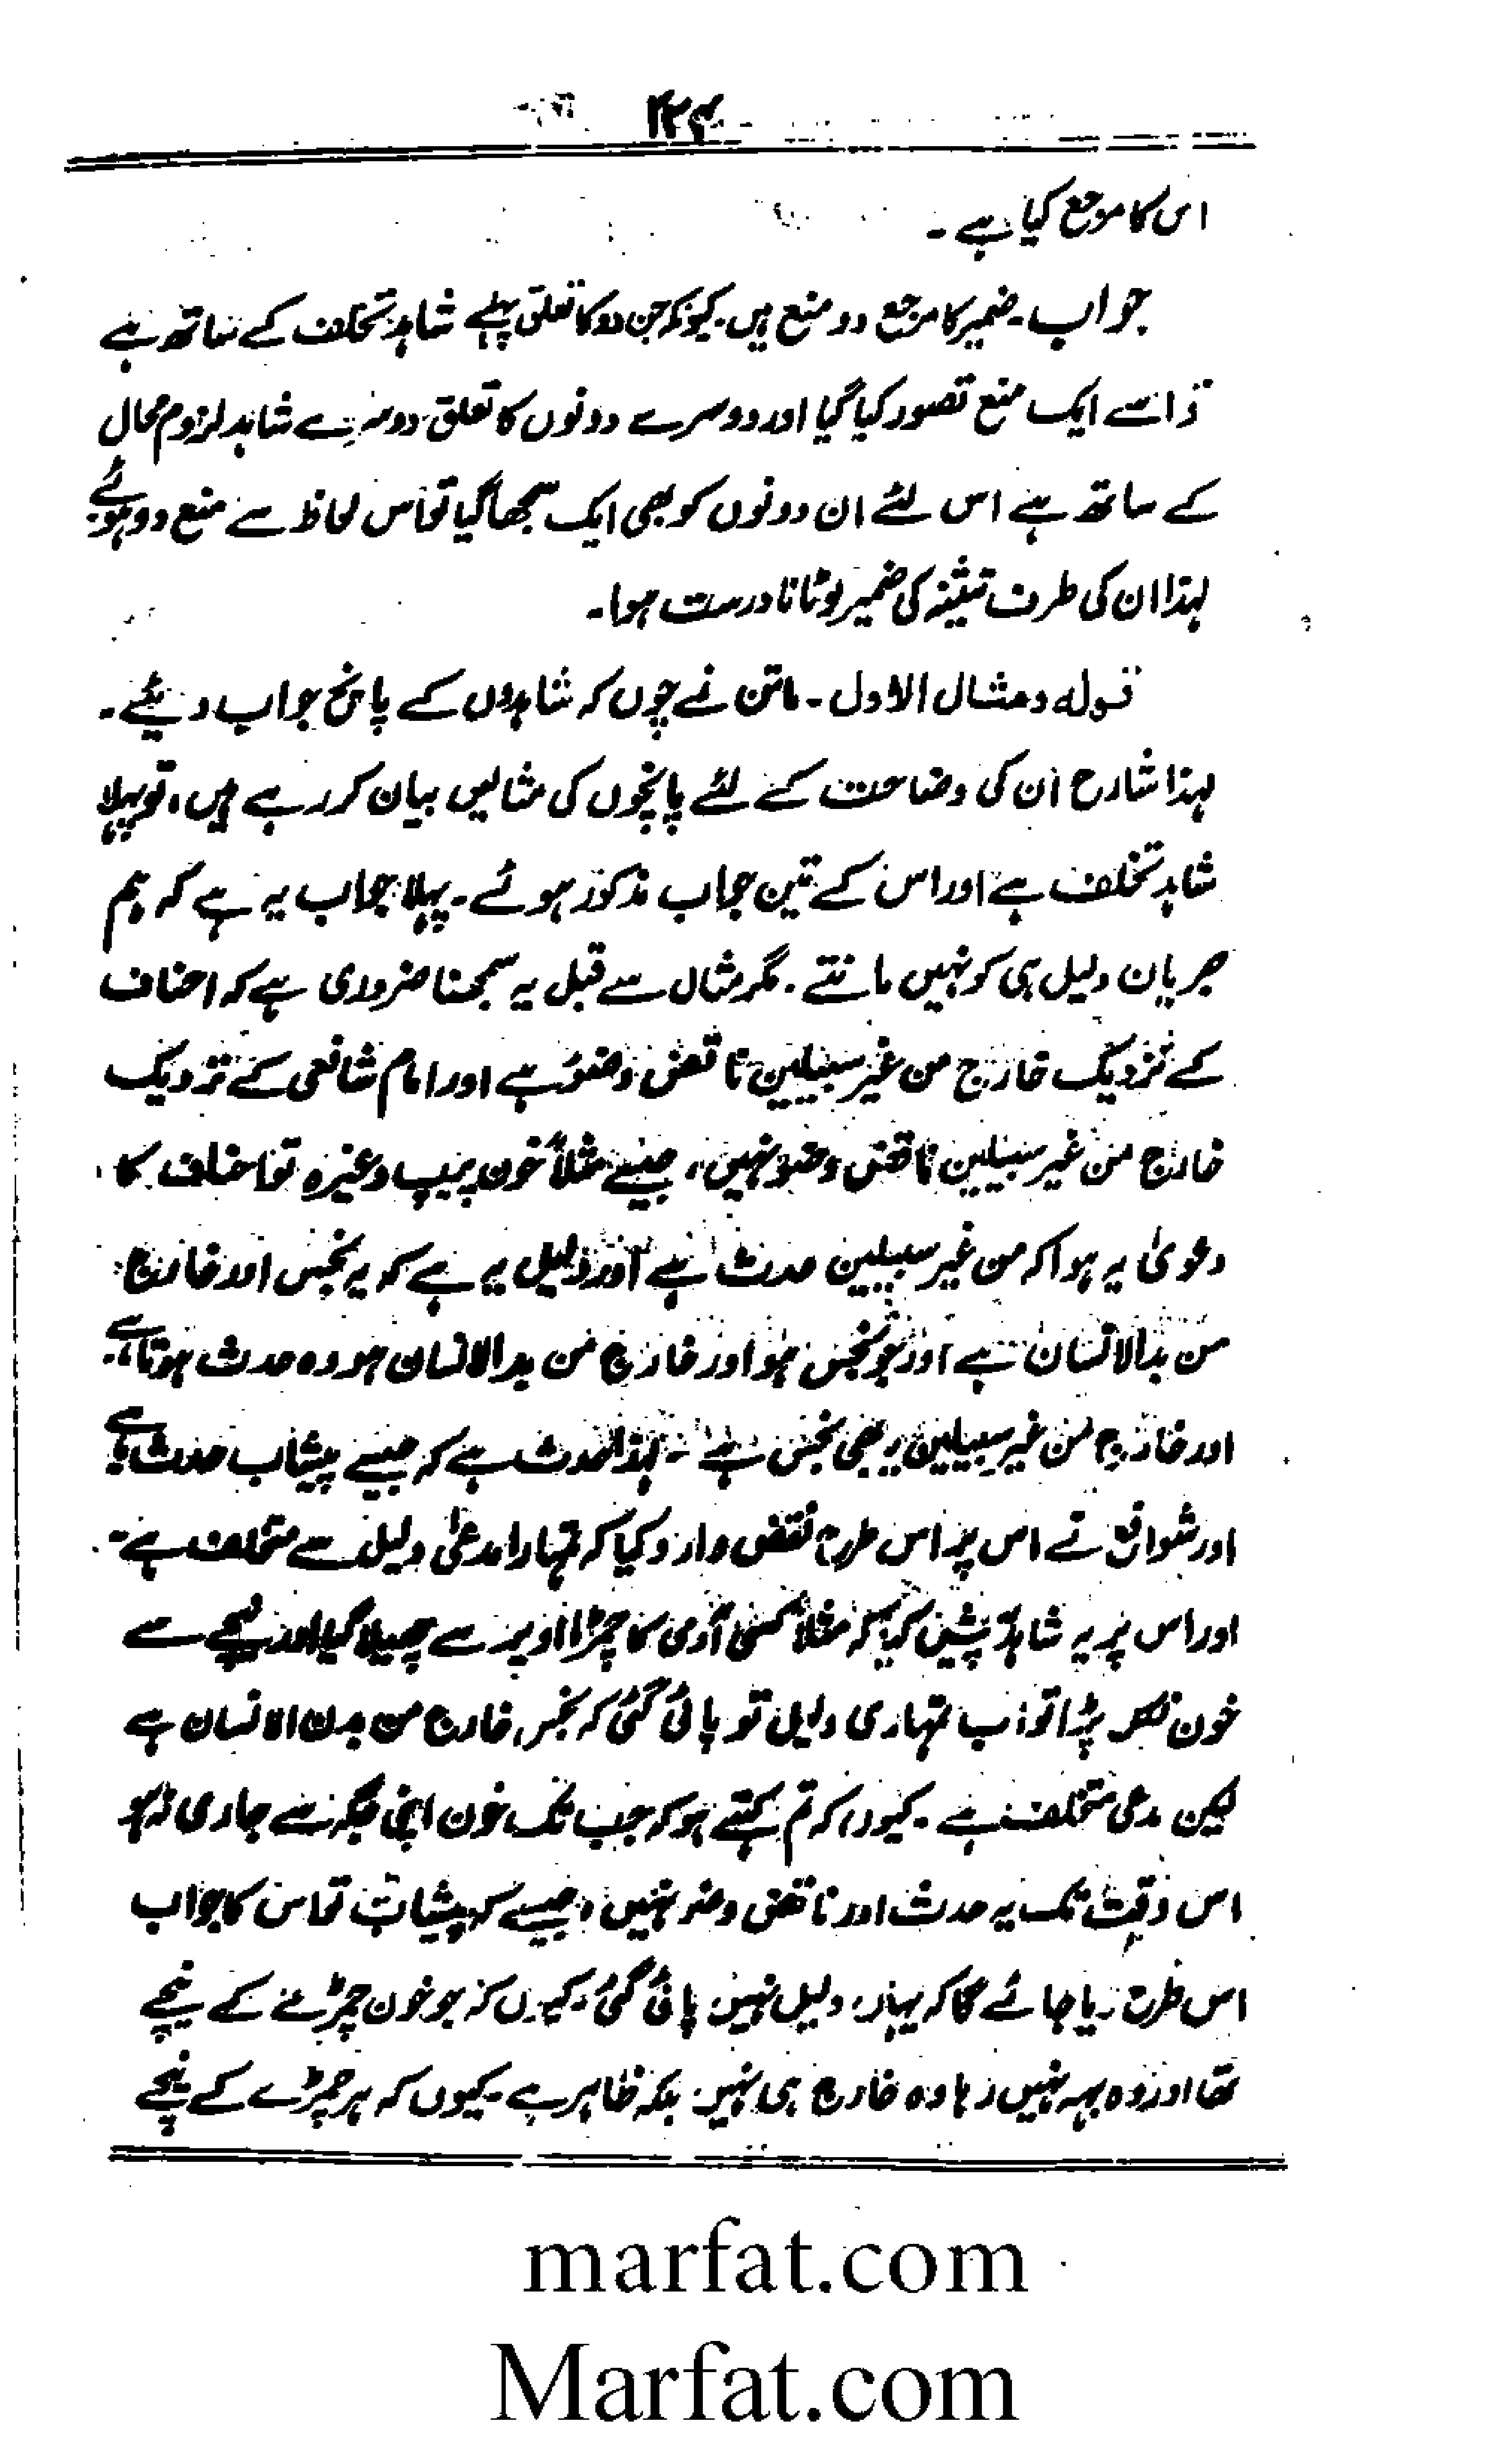 ۱۲۴
اس کا مرجع کیا ہے۔
جواب۔ ضمیر کا مرجع دو منع ہیں۔ کیونکہ جن دو کا تعلق پہلے شاہد تخلف کے ساتھ ہے
تو اسے ایک منع تصور کیا گیا اور دوسرے دونوں کا تعلق دوسرے شاہد لزوم محال
کے ساتھ ہے اس لئے ان دونوں کو بھی ایک سمجھا گیا تو اس لحاظ سے منع دو ہوئے
لہذا ان کی طرف تثنیہ کی ضمیر لوٹانا درست ہوا۔
قولہ ومثال الاول۔ ماتن نے چوں کہ شاہدوں کے پانچ جواب دیئے۔
لہذا شارح ان کی وضاحت کے لئے پانچوں کی مثالیں بیان کر رہے ہیں، تو پہلا
شاہد تخلف ہے اور اس کے تین جواب مذکور ہوئے۔ پہلا جواب یہ ہے کہ ہم
جریان دلیل ہی کو نہیں مانتے۔ مگر مثال سے قبل یہ سمجھنا ضروری ہے کہ احناف
کے نزدیک خارج من غیر سبیلین ناقض وضوء ہے اور امام شافعی کے نزدیک
خارج من غیر سبیلین ناقض وضو نہیں، جیسے مثلاً خون پیپ وغیرہ تو احناف کا
دعویٰ یہ ہوا کہ من غیر سبیلین حدث ہے اور دلیل یہ ہے کہ یہ نجس اور خارج
من بدالانسان ہے اور جو نجس ہو اور خارج من بدالانسان ہو وہ حدث ہوتا ہے۔
اور خارج من غیر سبیلین یہ بھی نجس ہے۔ لہذا حدث ہے کہ جیسے پیشاب حدث ہے
اور شوافع نے اس پر اس طرح نقض وارد کیا کہ تمہارا مدعیٰ دلیل سے متخلف ہے۔
اور اس پر یہ شاہد پیش کیا کہ مثلاً کسی آدمی کا چمڑا اوپر سے چھیلا گیا اور نیچے سے
خون نکل پڑا تو اب تمہاری دلیل تو پائی گئی کہ نجس خارج من بدن الانسان ہے
لیکن مدعی متخلف ہے۔ کیوں کہ تم کہتے ہو کہ جب تک خون اپنی جگہ سے جاری نہ ہو
اس وقت تک یہ حدث اور ناقض وضو نہیں، جیسے کہ پیشاب تو اس کا جواب
اس طرح دیا جائے گا کہ یہاں دلیل نہیں پائی گئی۔ کیوں کہ جو خون چمڑے کے نیچے
تھا اور وہ بہہ نہیں رہا وہ خارج ہی نہیں۔ بلکہ ظاہر ہے۔ کیوں کہ ہر چمڑے کے نیچے
marfat.com
Marfat.com